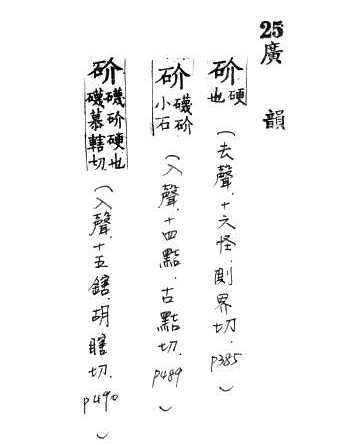 25廣韻
砎硬也(去聲.十六怪.界切.p385)
砎礣砎小石(入聲.十四黠.古黠切.p489)
砎礣砎硬也礣慕轄切(入聲.十五鎋.胡瞎切.p490)